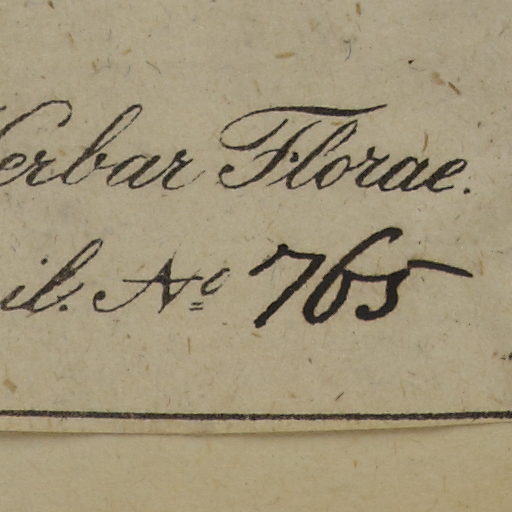 erbar Florae.
il. No 765